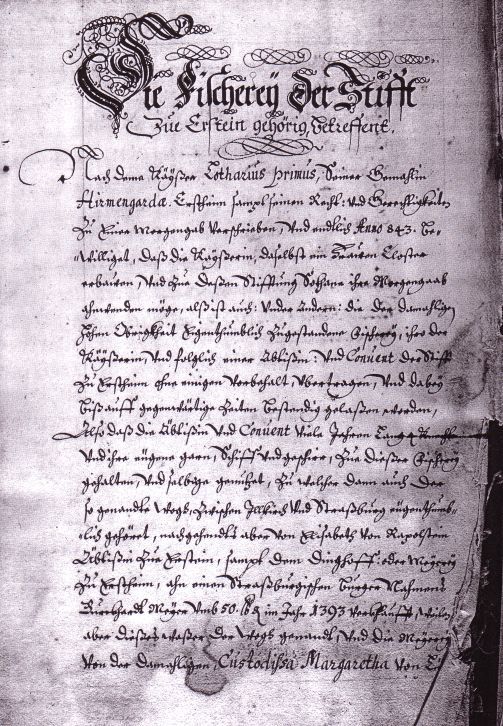 Die Fischereÿ der Stifft
Zue Erstein gehörig, betreffent.
Nach deme Kaÿßer Lotharius primus, Seiner Gemahlin
Hirmengarda. Erstheim sampt seinen Recht: und Gerechtigkeiten
Zu Einer Morgengab Verschrieben, Und endlich Anno 843. Be-
williget, daß die Kaÿserin, daselbst ein Frauen Closter
erbauen, Und Zue deßen Stifftung Sothane ihre Morgengaab
ahnwenden möge, alß ist auch: Under andern: die der damahligen
Hohen Obrigkeit Eigenthumblich Zugestandene Fischereÿ, ihro der
Kaÿserin, Und folglich einer Äbtißin. Und Convent der Stifft
Zu Erstheim ohne einigen Vorbehalt, Übertragen, Und dabeÿ
biß auff gegenwärtige Zeiten bestendig gelaßen worden,
Also daß die Äbtißin Und Convent viele Jahren Lang
Und ihre eigene garn, Schiff Und geschirr, Zue dießer Fischereÿ
gehalten, Und selbige genutzet, Zu welcher dann auch der
so genandte Wogs, Zwischen Illkirch Und Straßburg eigenthumb-
lich gehöret, nachgehendts aber von Elisabeth von Rapolstein
Äbtißin Zue Erstein, sampt dem Dinghoff: oder Meÿereÿ
Zu Erstheim, ahn einen Straßburgischen burger Nahmens
Burckhardt Meÿer Umb 50. lb im Jahr 1393 Verkaufft, weilen
aber dießes waßer der Wogs genandt, Und die Meÿereÿ
Von der damahligen, Custodissa Margaretha von